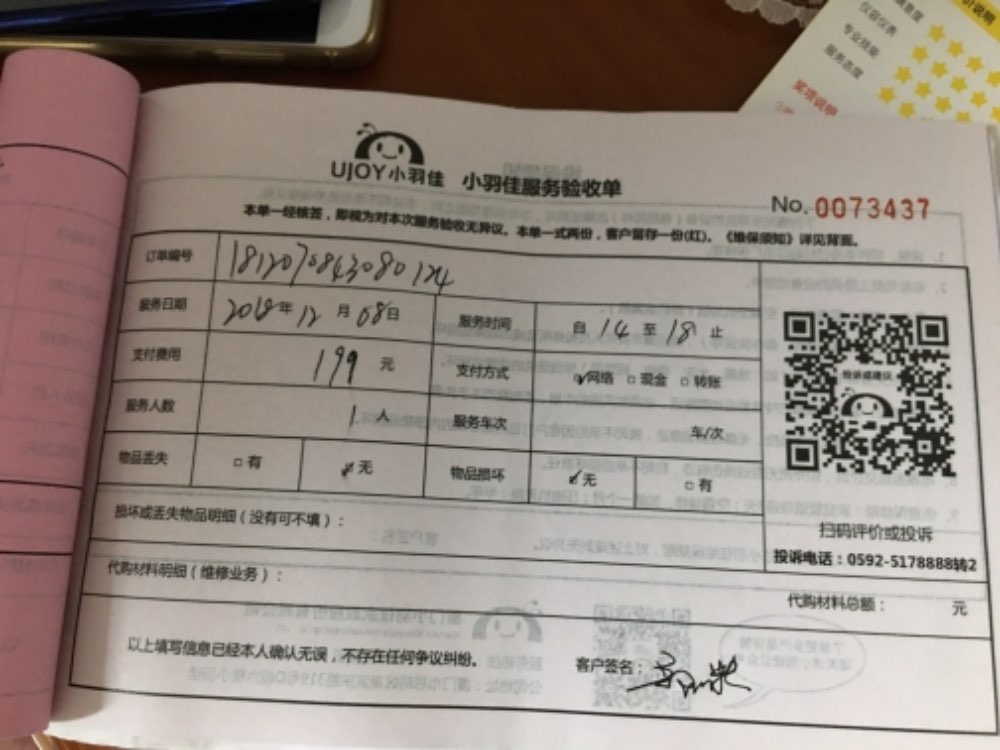 价说明
满意度
仪容仪表
专业技能
服务态度
奖项说明
UJOY小羽佳 小羽佳服务验收单
No. 0073437
本单一经核签，即视为对本次服务验收无异议。本单一式两份，客户留存一份(红)。《维保须知》详见背面。
订单编号 1812070843080124
服务日期 2018年12月08日 服务时间 自 14 至 18 止
支付费用 199 元 支付方式 网络 □ 现金 □ 转账
服务人数 1 人 服务车次 车/次
物品丢失 □ 有 无 物品损坏 无 □ 有
投诉或建议
损坏或丢失物品明细（没有可不填）：
扫码评价或投诉
投诉电话：0592-5178888转2
代购材料明细（维修业务）：
代购材料总额： 元
以上填写信息已经本人确认无误，不存在任何争议纠纷。 客户签名：